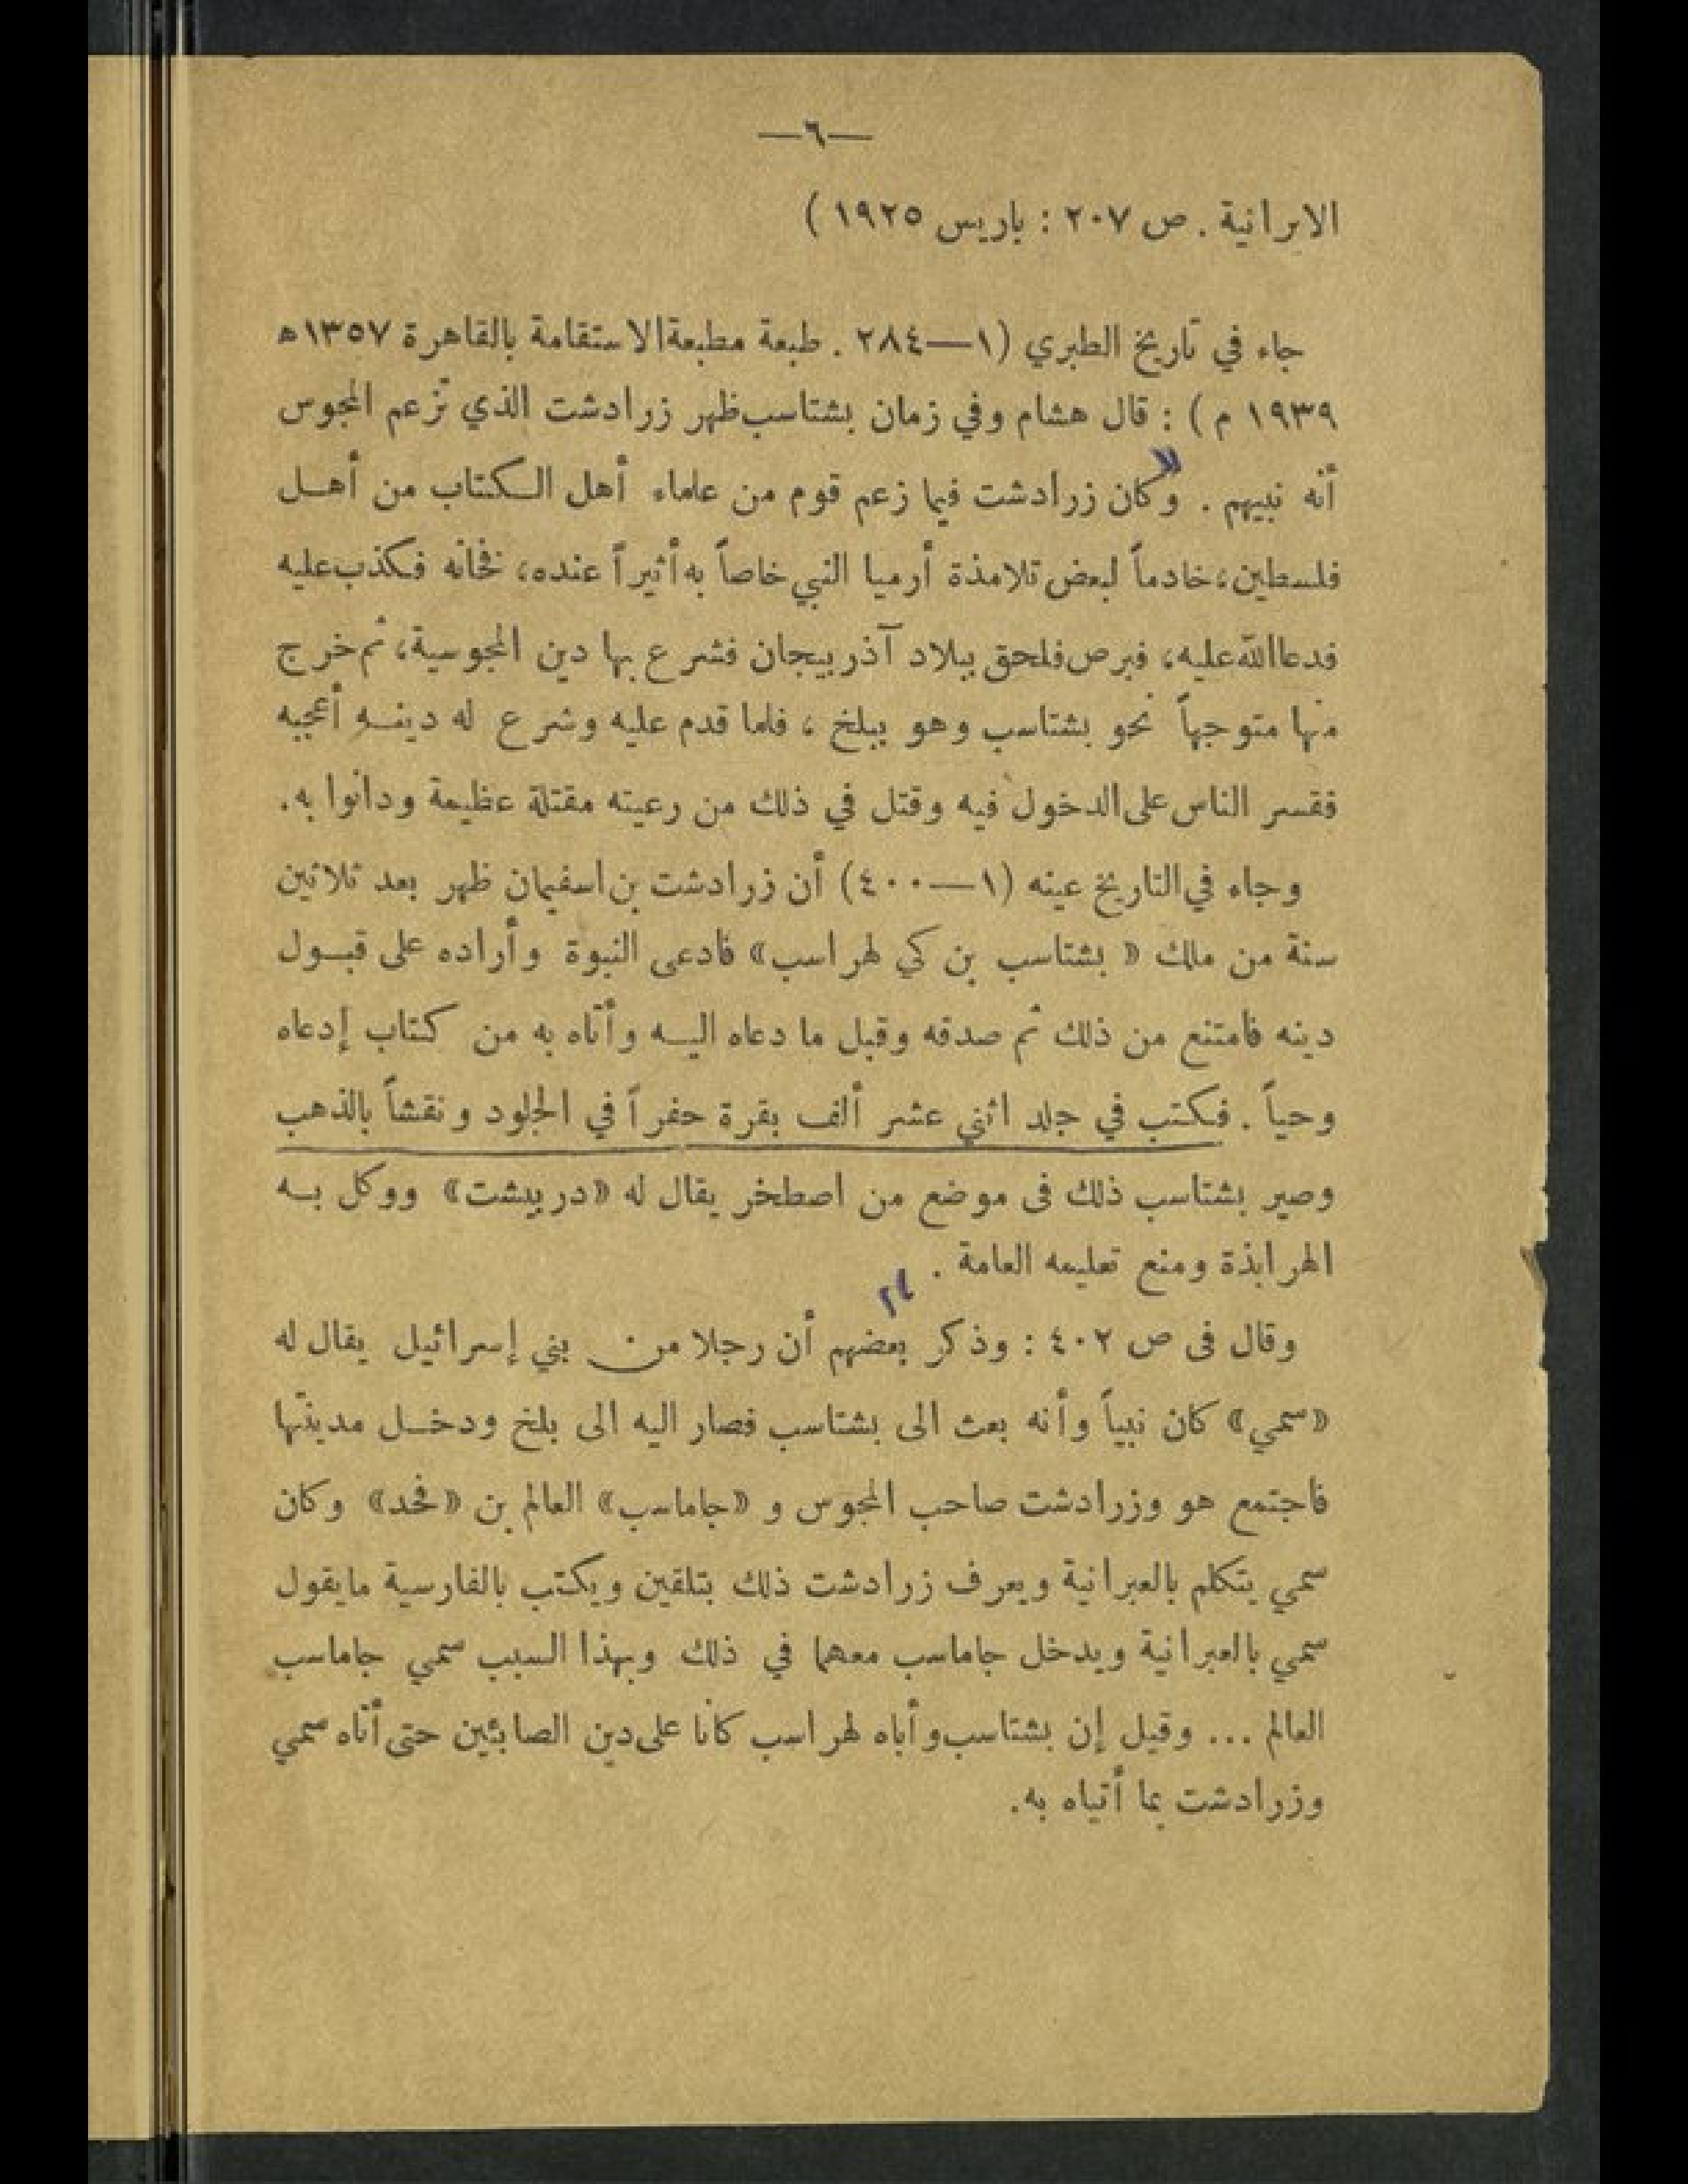 —٦—
الايرانية . ص ٢٠٧ : باريس ١٩٢٥ )
جاء في تاريخ الطبري (١—٢٨٤ . طبعة مطبعة الاستقامة بالقاهرة ١٣٥٧ه
١٩٣٩ م ) : قال هشام وفي زمان بشتاسب ظهر زرادشت الذي تزعم المجوس
أنه نبيهم . وكان زرادشت فيما زعم قوم من علماء أهل الكتاب من أهل
فلسطين، خادماً لبعض تلامذة أرميا النبي خاصاً به أثيراً عنده، فخانه فكذب عليه
فدعا الله عليه، فبرص فلحق ببلاد آذربيجان فشرع بها دين المجوسية، ثم خرج
منها متوجهاً نحو بشتاسب وهو ببلخ ، فلما قدم عليه وشرع له دينه أعجبه
فقسر الناس على الدخول فيه وقتل في ذلك من رعيته مقتلة عظيمة ودانوا به.
وجاء في التاريخ عينه (١—٤٠٠) أن زرادشت بن اسفيمان ظهر بعد ثلاثين
سنة من ملك « بشتاسب بن كي لهراسب» فادعى النبوة وأراده على قبول
دينه فامتنع من ذلك ثم صدقه وقبل ما دعاه اليه وأتاه به من كتاب إدعاه
وحياً . فكتب في جلد اثني عشر ألف بقرة حفراً في الجلود ونقشاً بالذهب
وصير بشتاسب ذلك فى موضع من اصطخر يقال له «دربيشت» ووكل به
الهرابذة ومنع تعليمه العامة .
وقال فى ص ٤٠٢ : وذكر بعضهم أن رجلا من بني إسرائيل يقال له
«سمي» كان نبياً وأنه بعث الى بشتاسب فصار اليه الى بلخ ودخل مدينتها
فاجتمع هو وزرادشت صاحب المجوس و «جاماسب» العالم بن «فخد» وكان
سمي يتكلم بالعبرانية ويعرف زرادشت ذلك بتلقين ويكتب بالفارسية مايقول
سمي بالعبرانية ويدخل جاماسب معهما في ذلك وبهذا السبب سمي جاماسب
العالم ... وقيل إن بشتاسب وأباه لهراسب كانا على دين الصابئين حتى أتاه سمي
وزرادشت بما أتياه به.